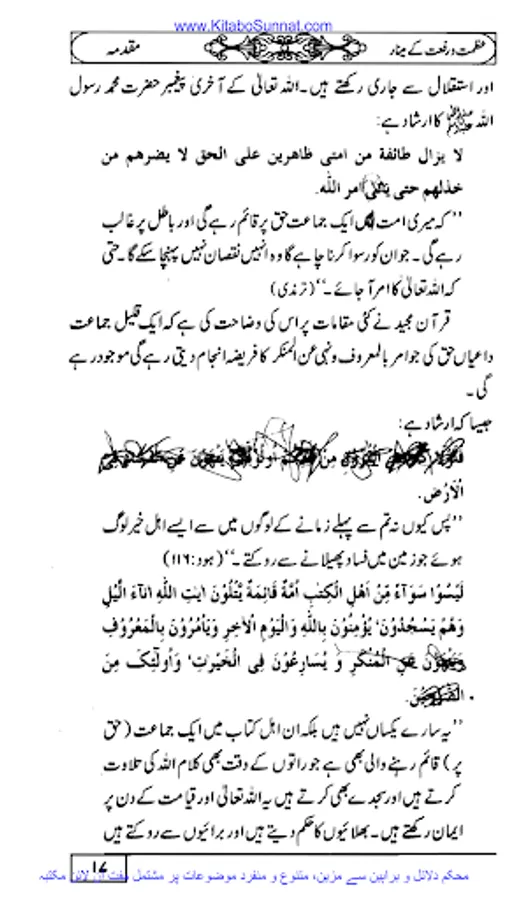 www.KitaboSunnat.com
عظمت و رفعت کے مینار مقدمہ
اور استقلال سے جاری رکھتے ہیں۔ اللہ تعالیٰ کے آخری پیغمبر حضرت محمد رسول
اللہ ﷺ کا ارشاد ہے:
لا یزال طائفة من امتی ظاہرین علی الحق لا یضرہم من
خذلہم حتی امر اللہ۔
’’کہ میری امت ایک جماعت حق پر قائم رہے گی اور باطل پر غالب
رہے گی۔ جو ان کو رسوا کرنا چاہے گا وہ انہیں نقصان نہیں پہنچا سکے گا۔ حتی
کہ اللہ تعالیٰ کا امر آ جائے۔‘‘ (ترمذی)
قرآن مجید نے کئی مقامات پر اس کی وضاحت کی ہے کہ ایک قلیل جماعت
داعیان حق کی جو امر بالمعروف و نہی عن المنکر کا فریضہ انجام دیتی رہے گی موجود رہے
گی۔
جیسا کہ ارشاد ہے:
الْاَرْضِ.
’’پس کیوں نہ تم سے پہلے زمانے کے لوگوں میں سے ایسے اہل خیر لوگ
ہوئے جو زمین میں فساد پھیلانے سے روکتے۔‘‘ (ہود:۱۱۶)
لَیْسُوْا سَوَآءً مِّنْ اَهْلِ الْکِتٰبِ اُمَّةٌ قَائِمَةٌ یَّتْلُوْنَ اٰیٰتِ اللّٰهِ اٰنَآءَ الَّیْلِ
وَهُمْ یَسْجُدُوْنَ' یُؤْمِنُوْنَ بِاللّٰهِ وَالْیَوْمِ الْاٰخِرِ وَیَاْمُرُوْنَ بِالْمَعْرُوْفِ
عَنِ الْمُنْکَرِ وَ یُسَارِعُوْنَ فِی الْخَیْرٰتِ' وَاُولٰٓئِکَ مِنَ
’’یہ سارے یکساں نہیں ہیں بلکہ ان اہل کتاب میں ایک جماعت (حق
پر) قائم رہنے والی بھی ہے جو راتوں کے وقت بھی کلام اللہ کی تلاوت
کرتے ہیں اور سجدے بھی کرتے ہیں یہ اللہ تعالیٰ اور قیامت کے دن پر
ایمان رکھتے ہیں۔ بھلائیوں کا حکم دیتے ہیں اور برائیوں سے روکتے ہیں
۱۷
محکم دلائل و براہین سے مزین، متنوع و منفرد موضوعات پر مشتمل مفت آن لائن مکتبہ